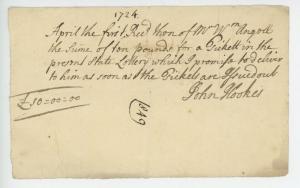 1724
April the first Recd then of Mr Wm Angell
the Sume of ten pounds for a Tickett in the
present State Lottery which I promise to deliver
to him as soon as the Tickets are Issued out
£ 10=00=00
John Hookes